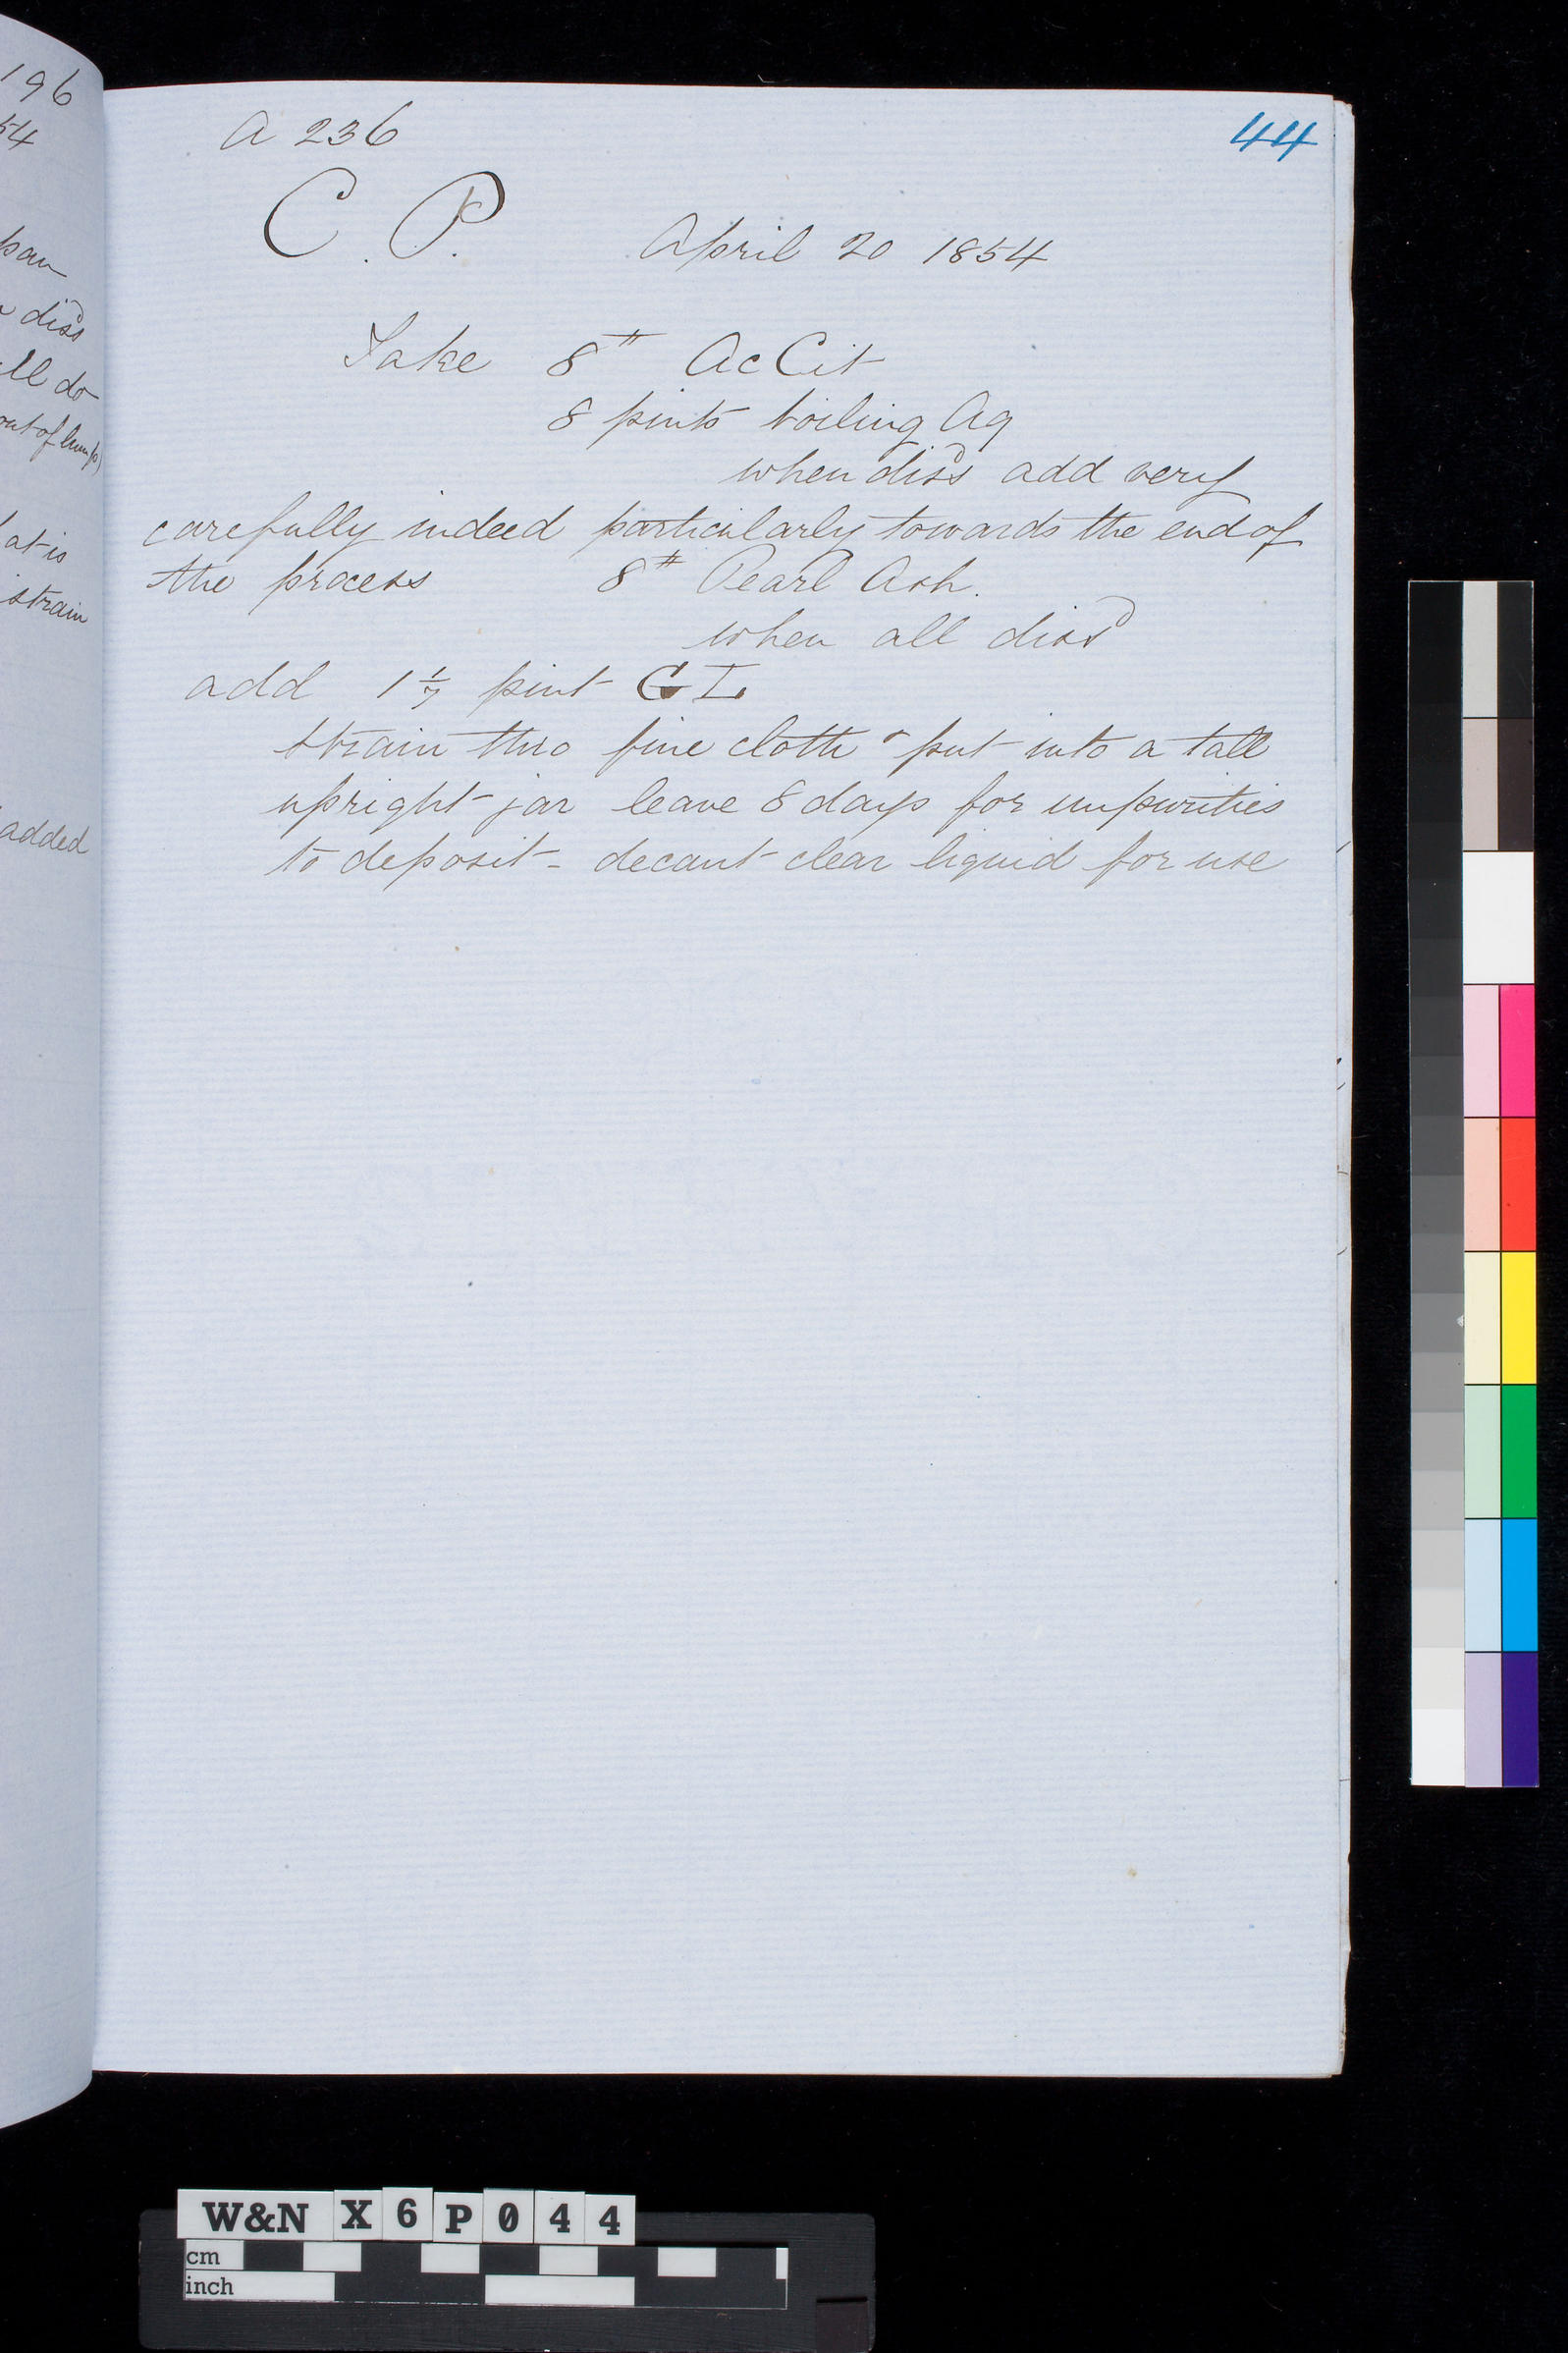 196
54
pan
diss
ll do
out of lumps)
at is
strain
added
A 236
44
C. P.
April 20 1854
Take 8# Ac Cit
8 pints boiling Aq
when dissd add very
carefully indeed particularly towards the end of
the process 8# Pearl Ash.
when all dissd
add 1 1/7 pint GL
strain thro fine cloth & put into a tall
upright jar leave 8 days for impurities
to deposit - decant clear liquid for use
W&N X6P044
cm
inch